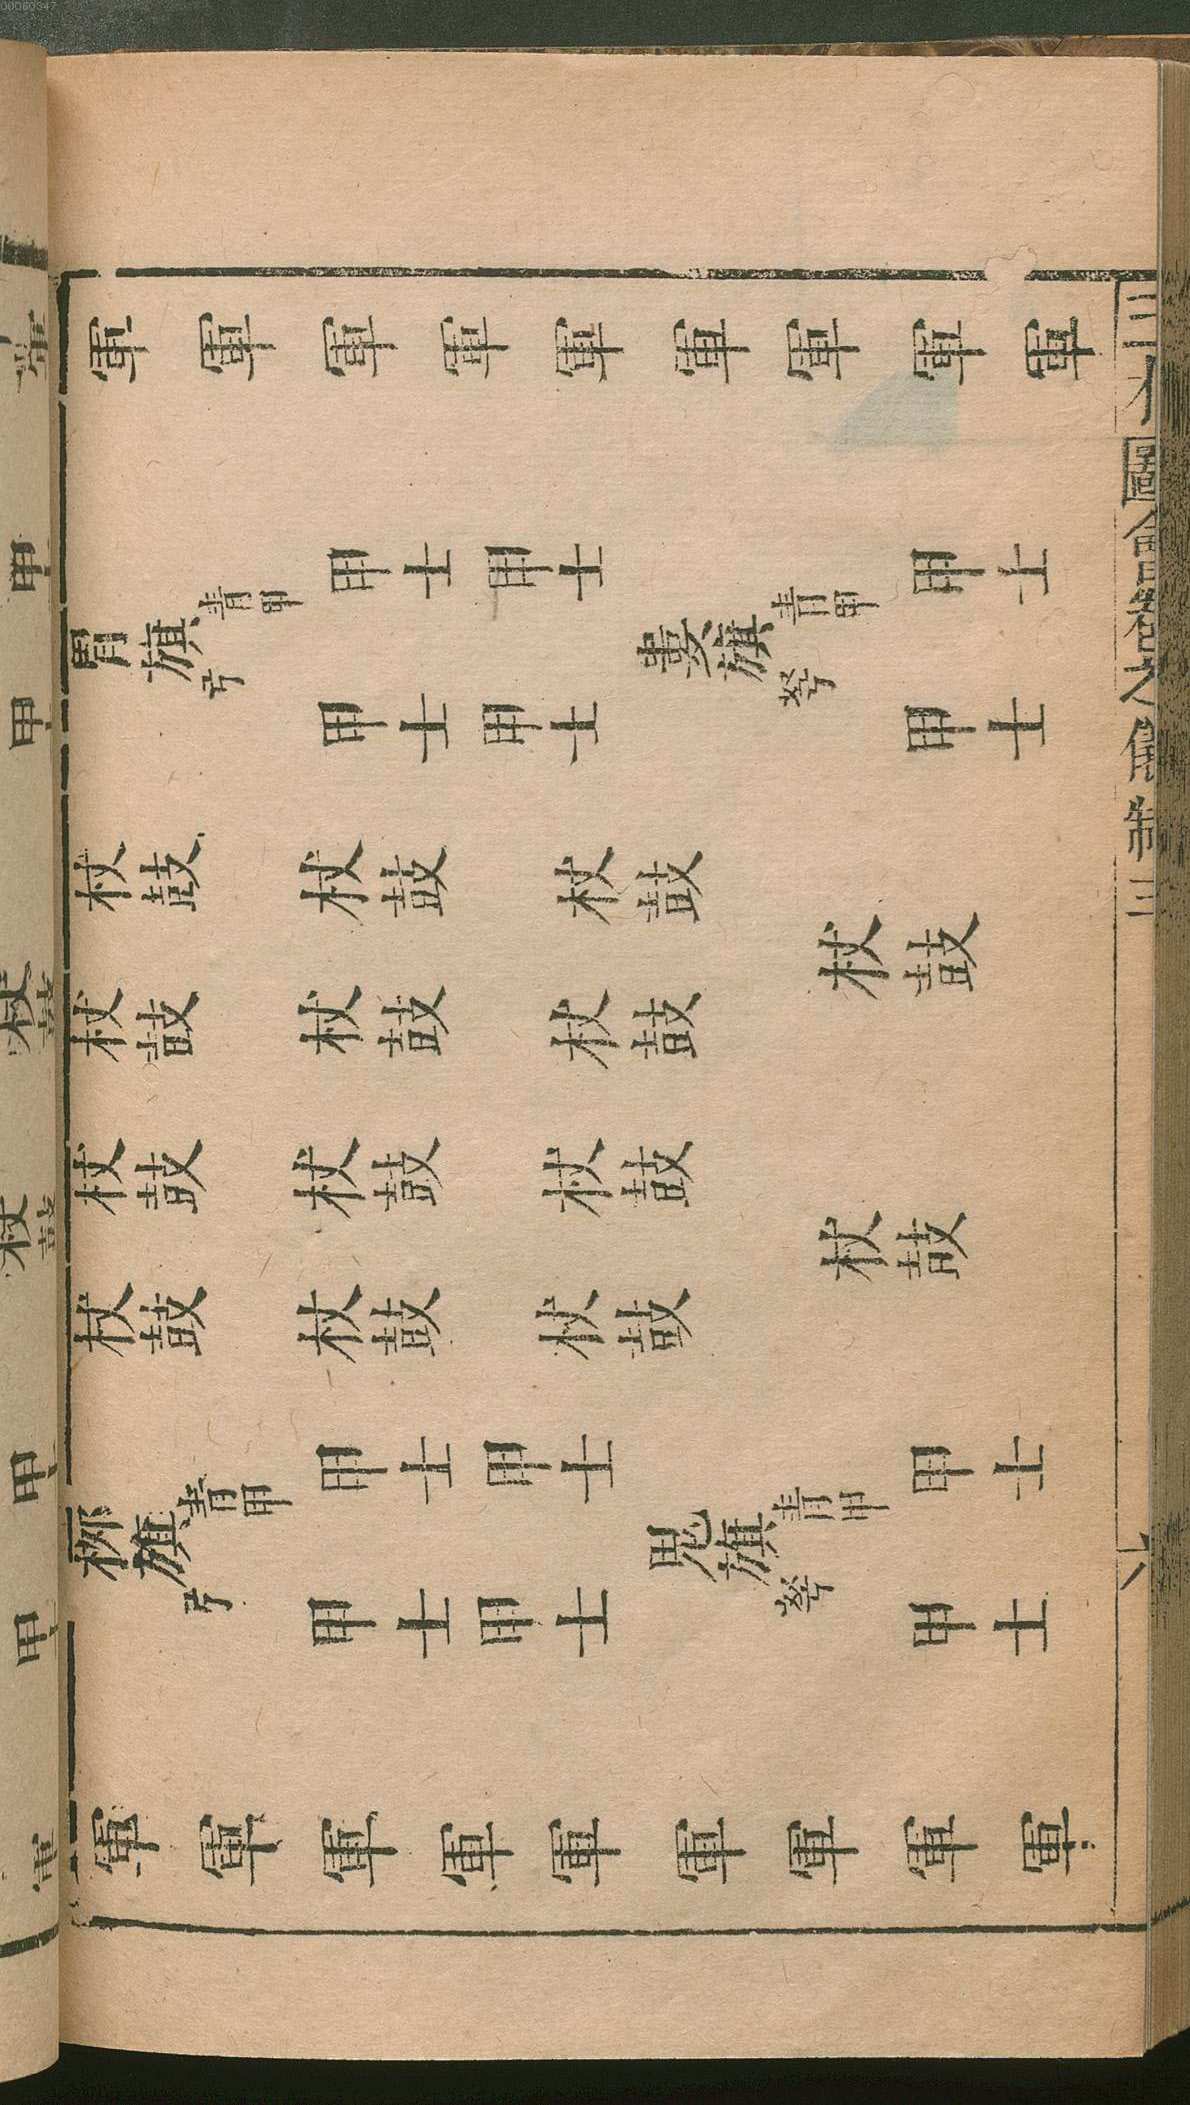 三才圖會卷之儀制三
六
軍 軍 軍 軍 軍 軍 軍 軍 軍
甲士 甲士 甲士
胃旗 青甲 弓
婁旗 青甲 弩
甲士 甲士 甲士
杖鼓 杖鼓 杖鼓
杖鼓
杖鼓 杖鼓 杖鼓
杖鼓 杖鼓 杖鼓
杖鼓
杖鼓 杖鼓 杖鼓
甲士 甲士 甲士
栁旗 青甲 弓
鬼旗 青甲 弩
甲士 甲士 甲士
軍 軍 軍 軍 軍 軍 軍 軍 軍
00060347